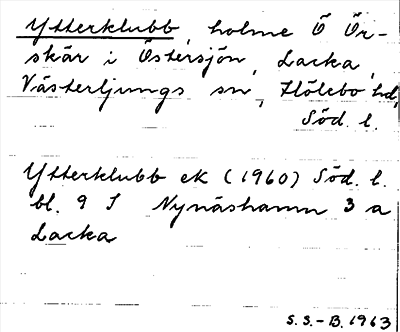 Ytterklubb, holme Ö Ör-
skär i Östersjön, Lacka,
Västerljungs sn, Hölebo hd,
Söd. l.
Ytterklubb ek (1960) Söd. l.
bl. 9 I Nynäshamn 3 a
Lacka
S.S.-B. 1963